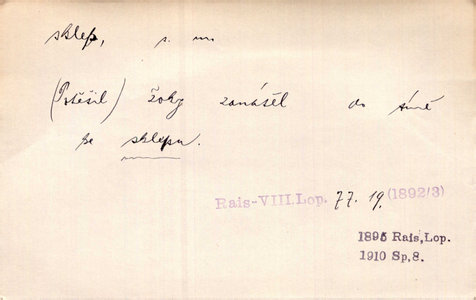 sklep, s. m.
(Potěšil) žoky zanášel do síně
ke sklepu.
Rais-VIII.Lop. 77. 19. (1892/3)
1895 Rais,Lop.
1910 Sp,8.